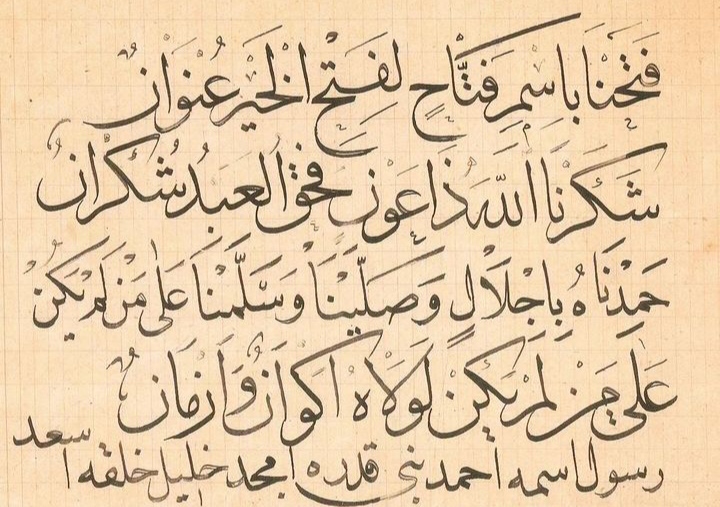 فَتَحْنَا بِاسْمِ فَتَّاحٍ لِفَتْحِ الْخَيْرِ عُنْوَانٌ
شَكَرْنَا اللّٰهَ ذَا عَوْنٍ فَحَقُّ الْعَبْدِ شُكْرَانٌ
حَمِدْنَاهُ بِإِجْلَالٍ وَصَلَّيْنَا وَسَلَّمْنَا عَلَى مَنْ لَمْ يَكُنْ
عَلَى مَنْ لَمْ يَكُنْ لَوْلَاهُ أَكْوَانٌ وَأَزْمَانٌ
رسول اسمه احمد نبى قدره امجد خليل خلقه اسعد